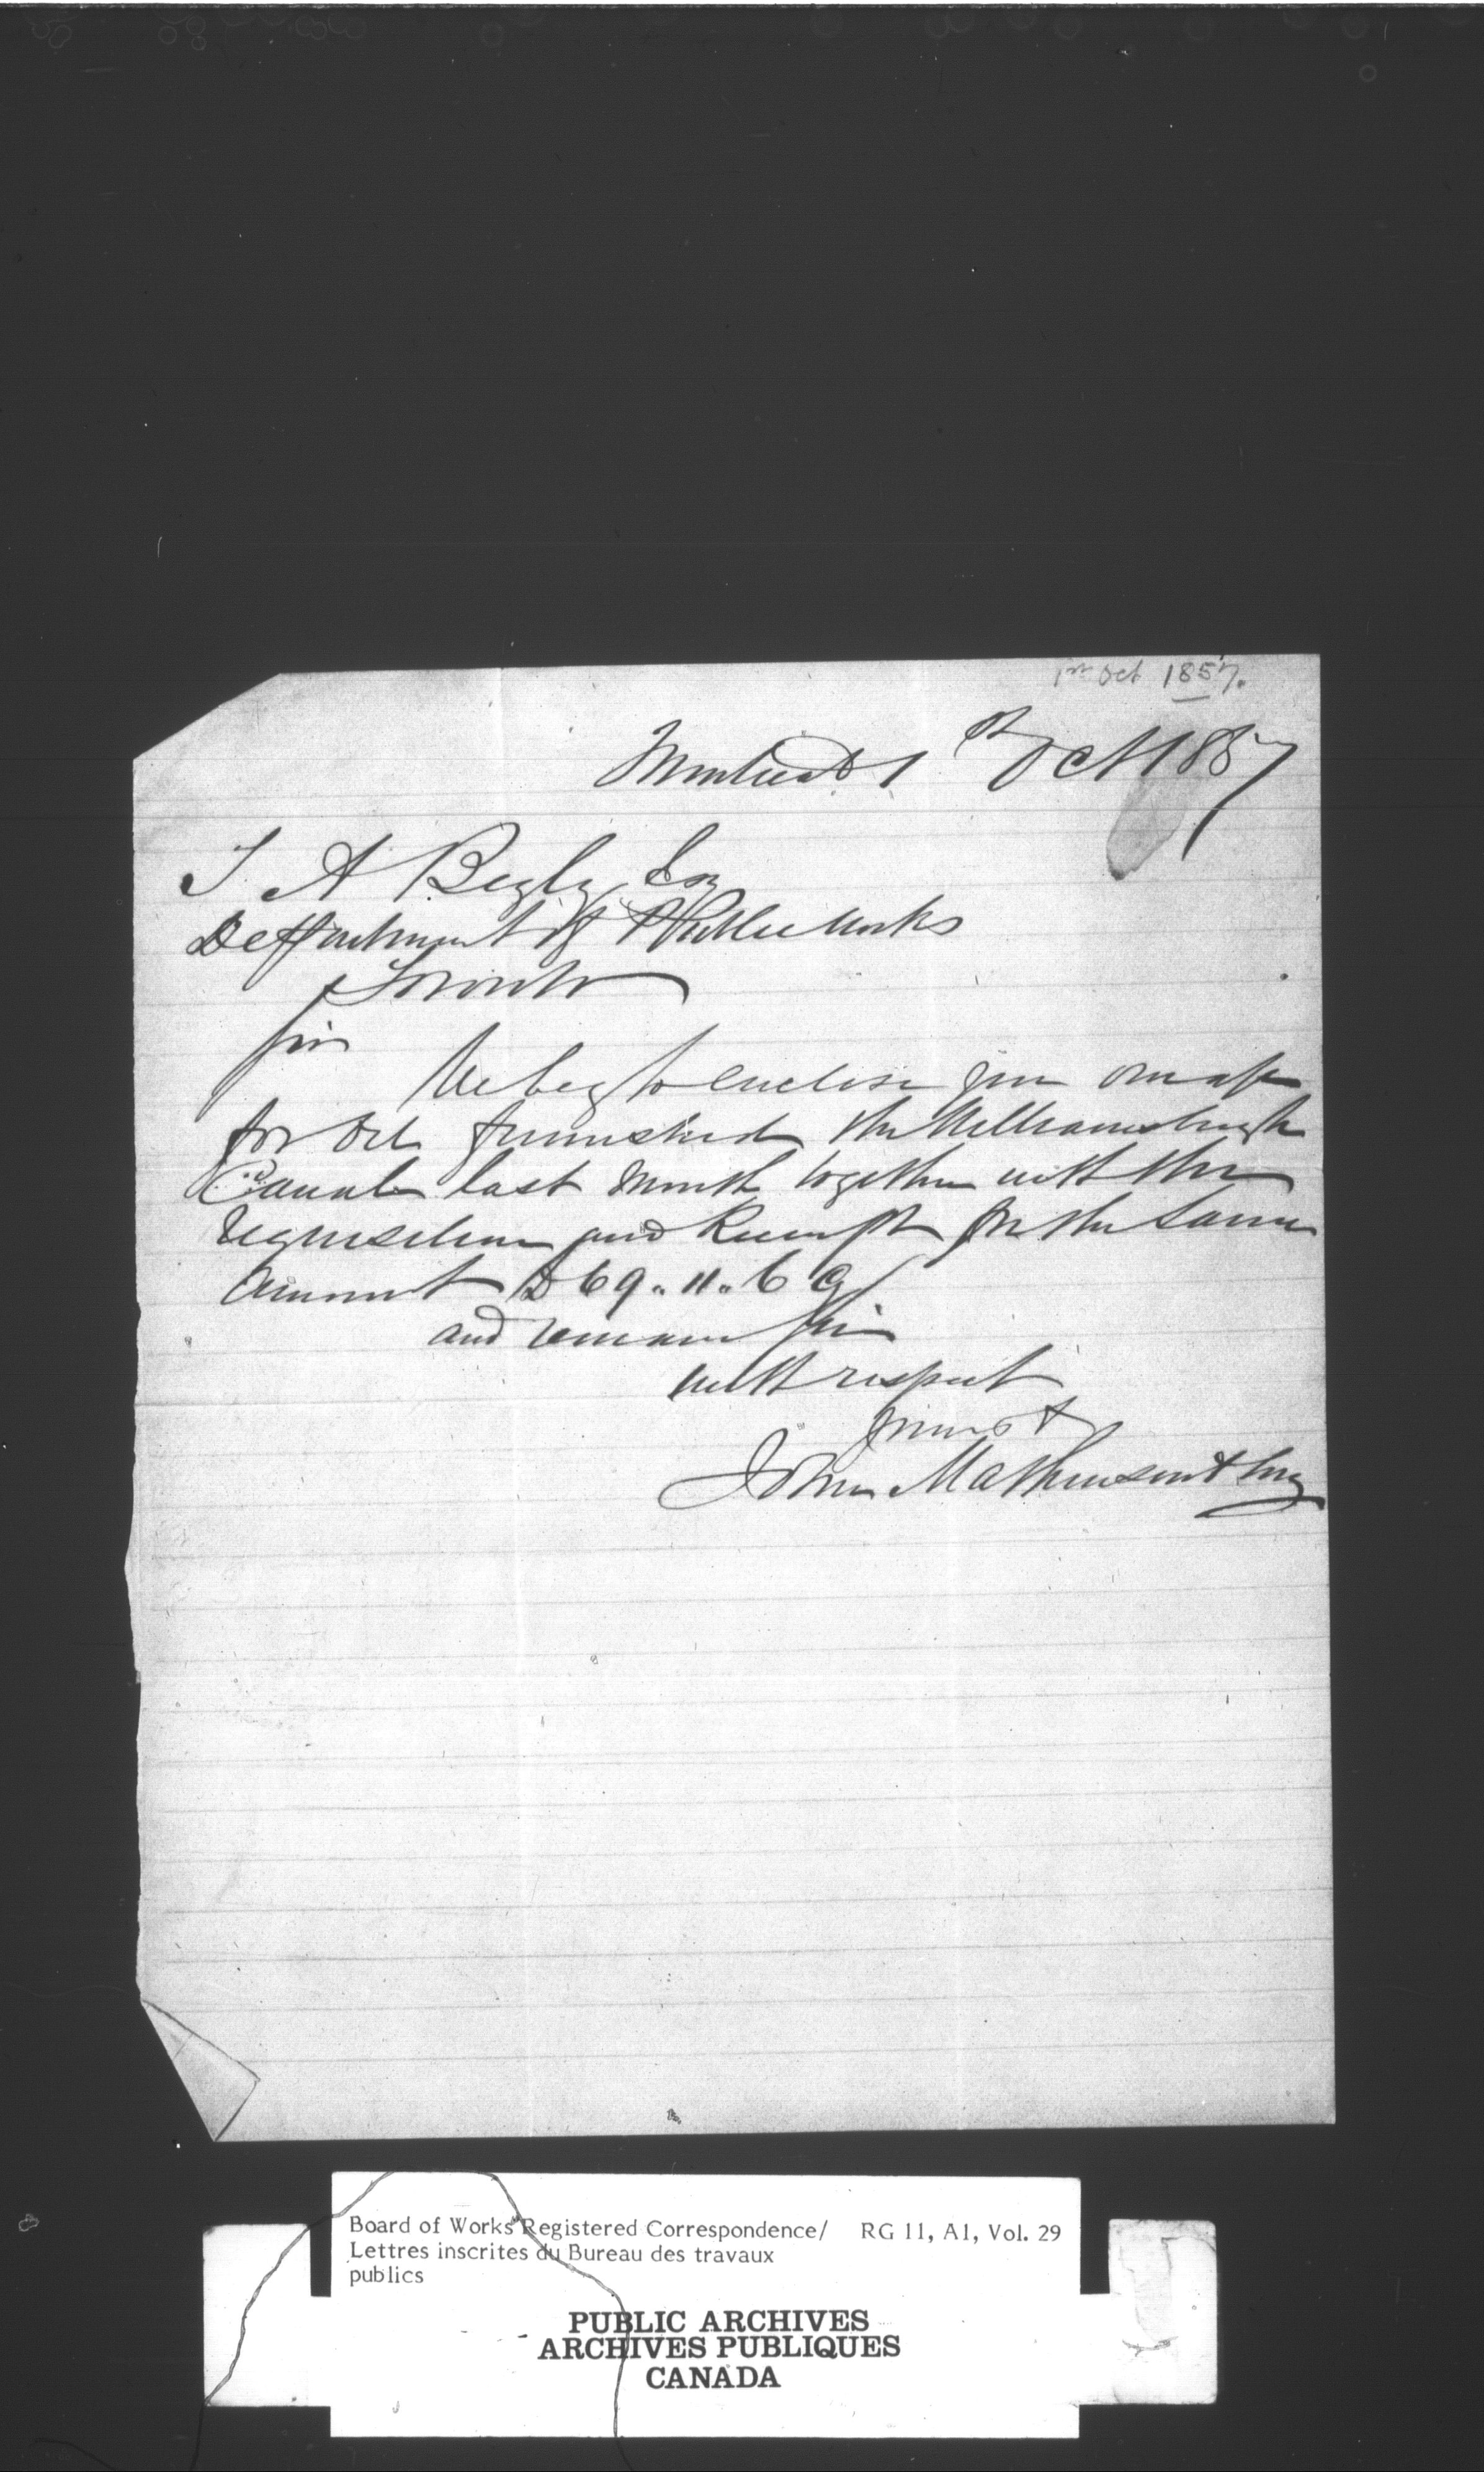 1st Oct 1857.
Montreal 1st Oct 1857
T A Begly Esq
Department of Public Works
Toronto
Sir
We beg to enclose you our a/c
for Oil furnished the Williamsburgh
Canal last month together with the
requisition and Receipt for the same
Amount £69.11.6 Cy
and remain Sir
with respect
yours &
John Mathewson & Son
Board of Works Registered Correspondence/ RG 11, A1, Vol. 29
Lettres inscrites du Bureau des travaux
publics
PUBLIC ARCHIVES
ARCHIVES PUBLIQUES
CANADA